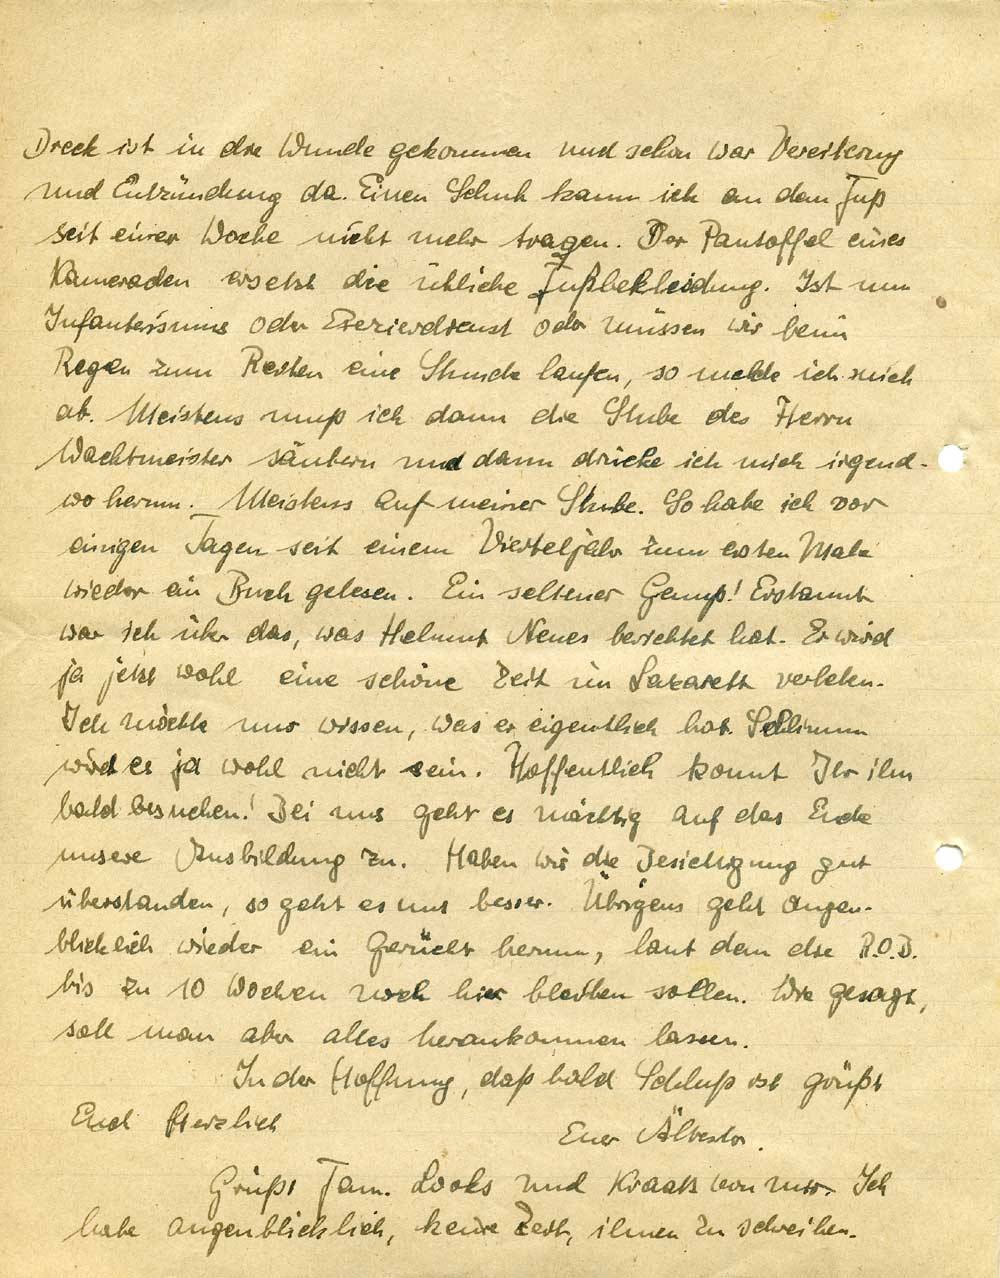 Dreck ist in die Wunde gekommen und schon war Vereiterung
und Entzündung da. Einen Schuh kann ich an dem Fuß
seit einer Woche nicht mehr tragen. Der Pantoffel eines
Kameraden ersetzt die übliche Fußbekleidung. Ist nun
oder Exerzierdienst oder müssen wir beim
Regen zum Reiten eine Stunde laufen, so melde ich mich
ab. Meistens muß ich dann die Stube des Herrn
Wachtmeister säubern und dann drücke ich mich irgend-
wo herum. Meistens auf meiner Stube. So habe ich vor
einigen Tagen seit einem Vierteljahr zum ersten Male
wieder ein Buch gelesen. Ein seltener Genuß! Erstaunt
war ich über das, was Helmut Neues berichtet hat. Er wird
ja jetzt wohl eine schöne Zeit im Lazarett verleben.
Ich möchte nur wissen, was er eigentlich hat. Schlimm
wird es ja wohl nicht sein. Hoffentlich könnt Ihr ihn
bald besuchen! Bei uns geht es mächtig auf das Ende
unsere Ausbildung zu. Haben wir die Besichtigung gut
überstanden, so geht es uns besser. Übrigens geht augen-
blicklich wieder ein Gerücht herum, laut dem die R.O.B.
bis zu 10 Wochen noch hier bleiben sollen. Wie gesagt,
soll man aber alles herankommen lassen.
In der Hoffnung, daß bald Schluß ist grüßt
Euch herzlich
Euer Ältester.
Grüßt Fam. Looks und Kraatz von mir. Ich
habe augenblicklich, keine Zeit, ihnen zu schreiben.